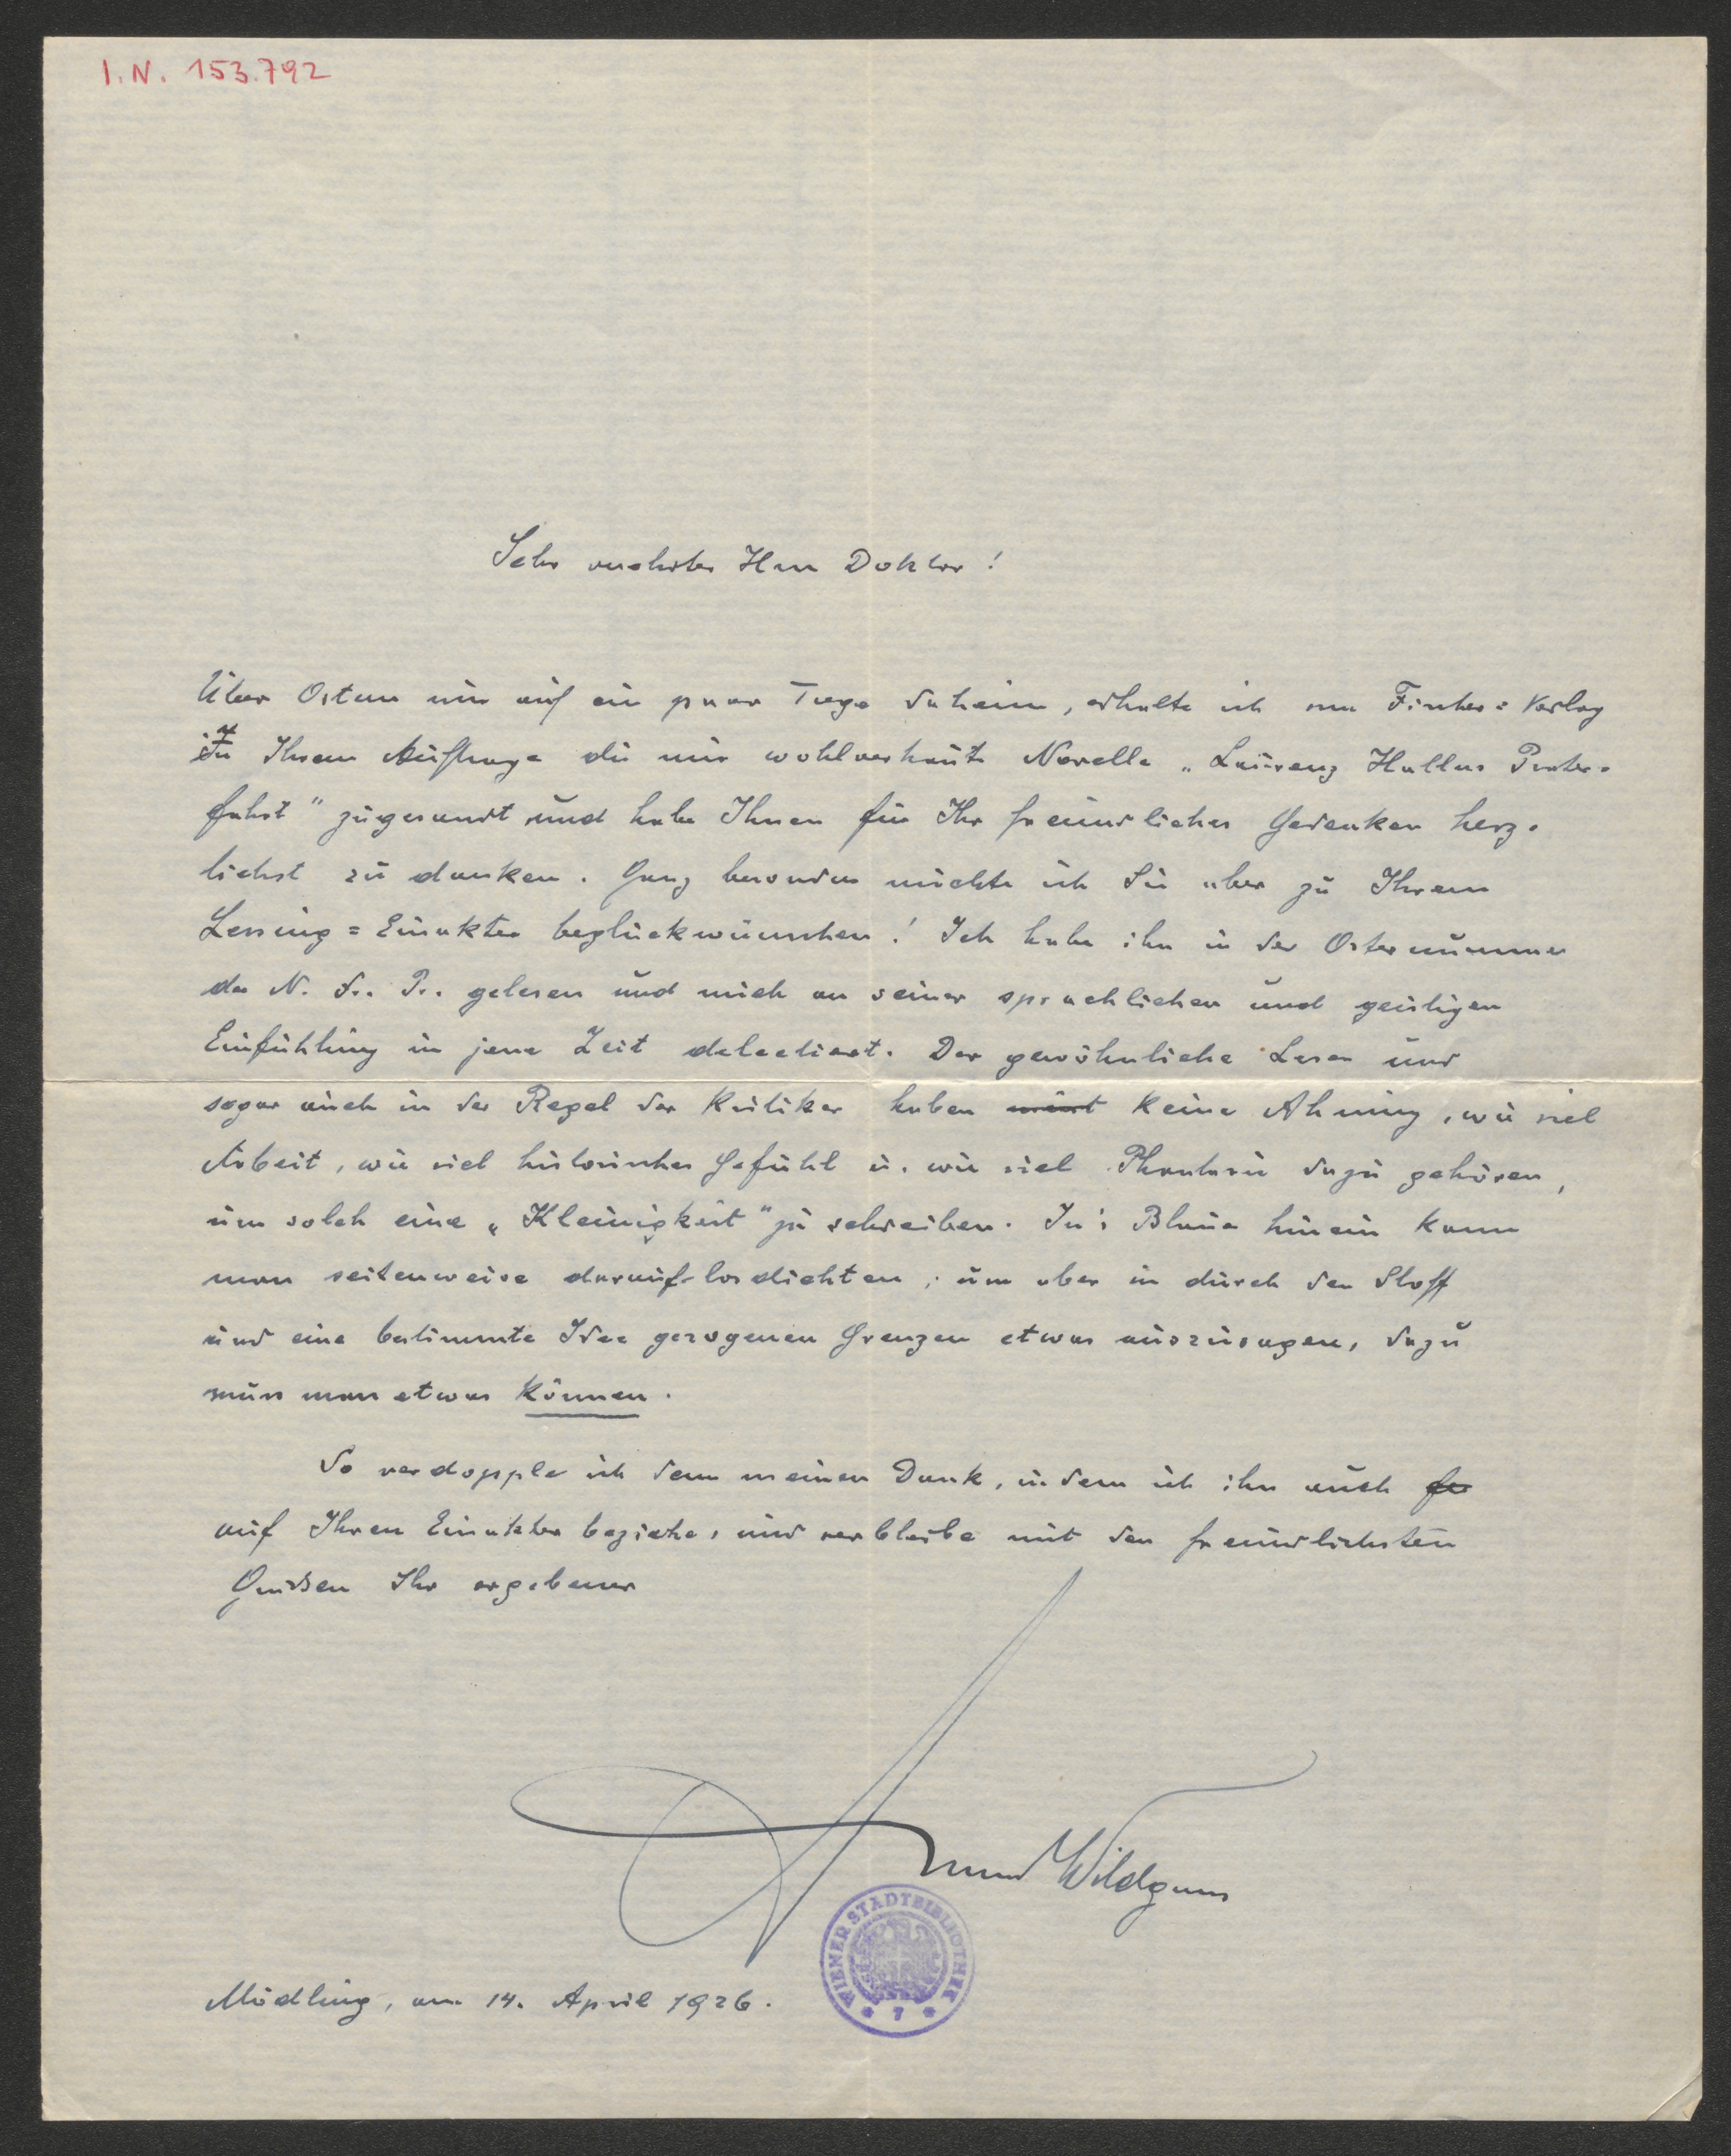 I.N. 153.792
Sehr verehrter Herr Doktor!
Über Ostern nur auf ein paar Tage daheim, erhalte ich vom Fischer=Verlag
in Ihrem Auftrage die mir wohlvertraute Novelle „Laurenz Hallers Prater-
fahrt" zugesandt und habe Ihnen für Ihr freundliches Gedenken herz-
lichst zu danken. Ganz besonders möchte ich Sie aber zu Ihrem
Lessing=Einakter beglückwünschen! Ich habe ihn in der Osternummer
der N. Fr. Pr. gelesen und mich an seiner sprachlichen und geistigen
Einfühlung in jene Zeit delectiert. Der gewöhnliche Leser und
sogar auch in der Regel der Kritiker haben keine Ahnung, wie viel
Arbeit, wie viel historisches Gefühl u. wie viel Phantasie dazu gehören,
um solch eine „Kleinigkeit" zu schreiben. In's Blaue hinein kann
man seitenweise darauf-losdichten; um aber in durch den Stoff
und eine bestimmte Idee gezogenen Grenzen etwas auszusagen, dazu
muss man etwas können.
So verdopple ich denn meinen Dank, indem ich ihn auch
auf Ihren Einakter beziehe, und verbleibe mit den freundlichsten
Grüßen Ihr ergebener
Anton Wildgans
WIENER STADTBIBLIOTHEK
* 7 *
Mödling, am 14. April 1926.